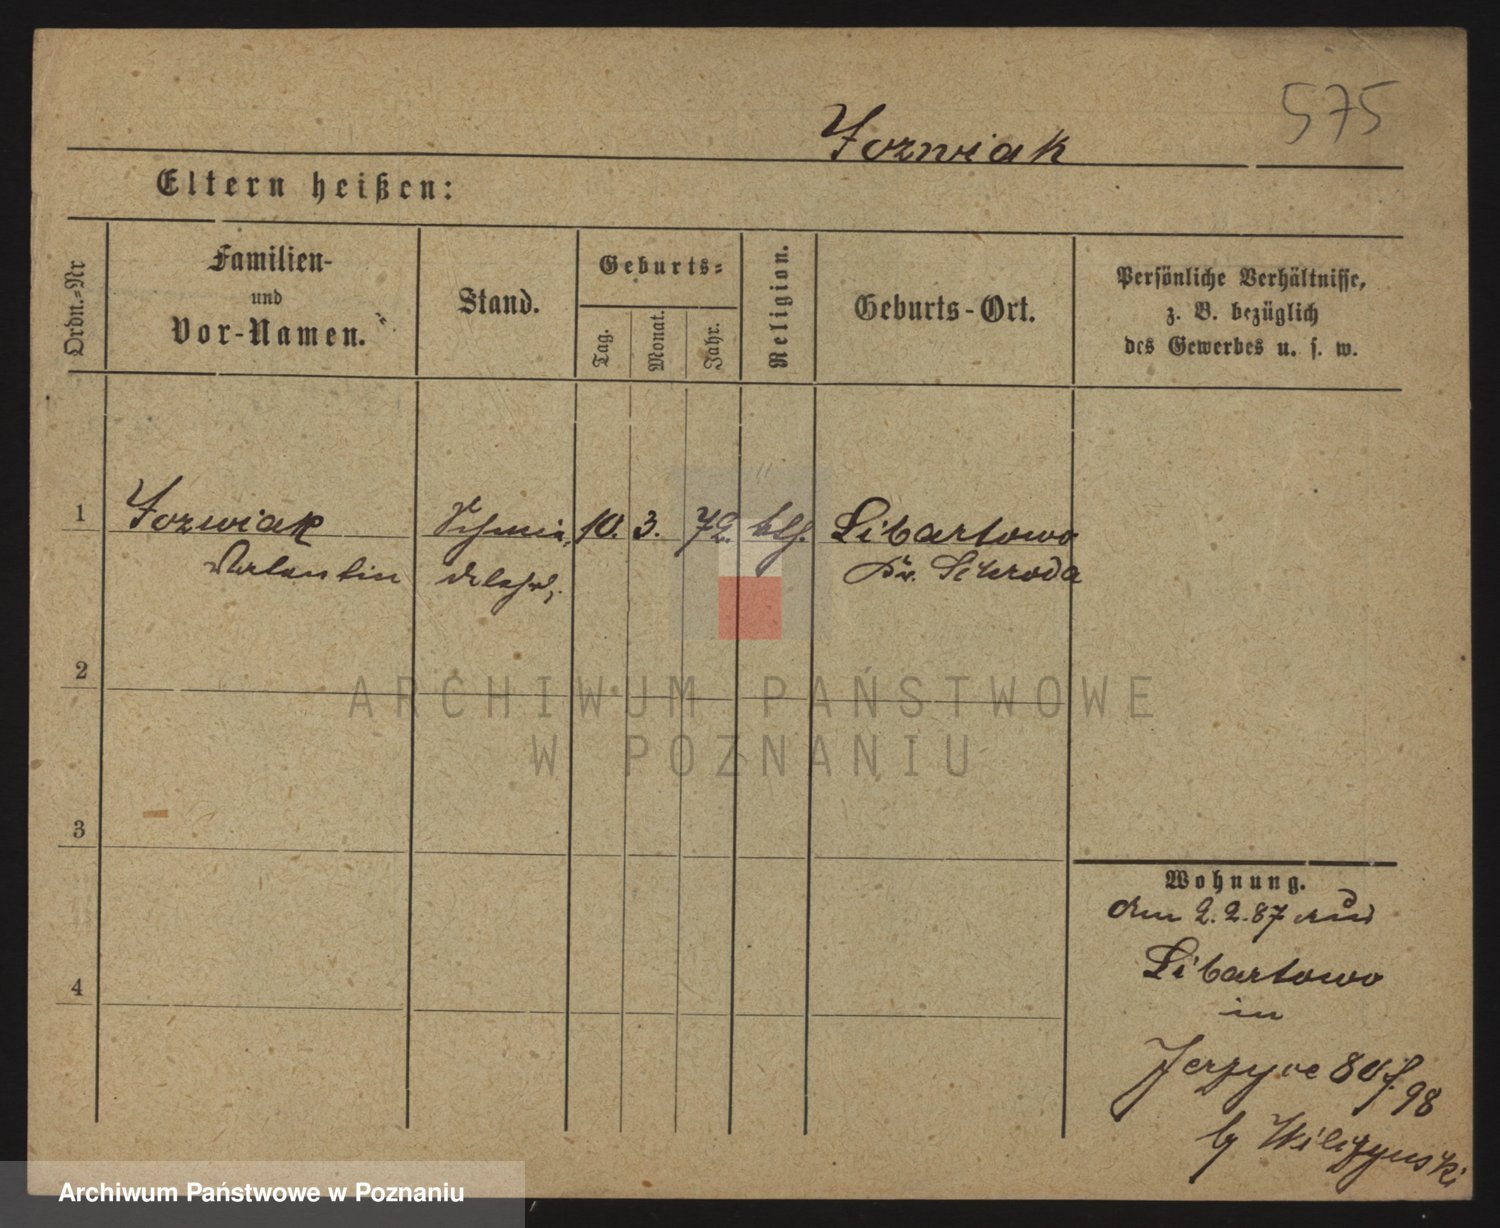 575
Jozwiak
Eltern heißen:
Ordn.=Nr
Familien-
und
Vor-Namen.
Stand.
Geburts=
Tag.
Monat.
Jahr.
Religion.
Geburts-Ort.
Persönliche Verhältnisse,
z. B. bezüglich
des Gewerbes u. s. w.
1
Jozwiak
Valentin
Schmie
delehrl.
10.
3.
72.
kth.
Libartowo
Kr. Schroda
2
3
4
Wohnung.
Am 2.2.87 aus
Libartowo
in
Jerzyce 80
98
by
ARCHIWUM PAŃSTWOWE
W POZNANIU
Archiwum Państwowe w Poznaniu